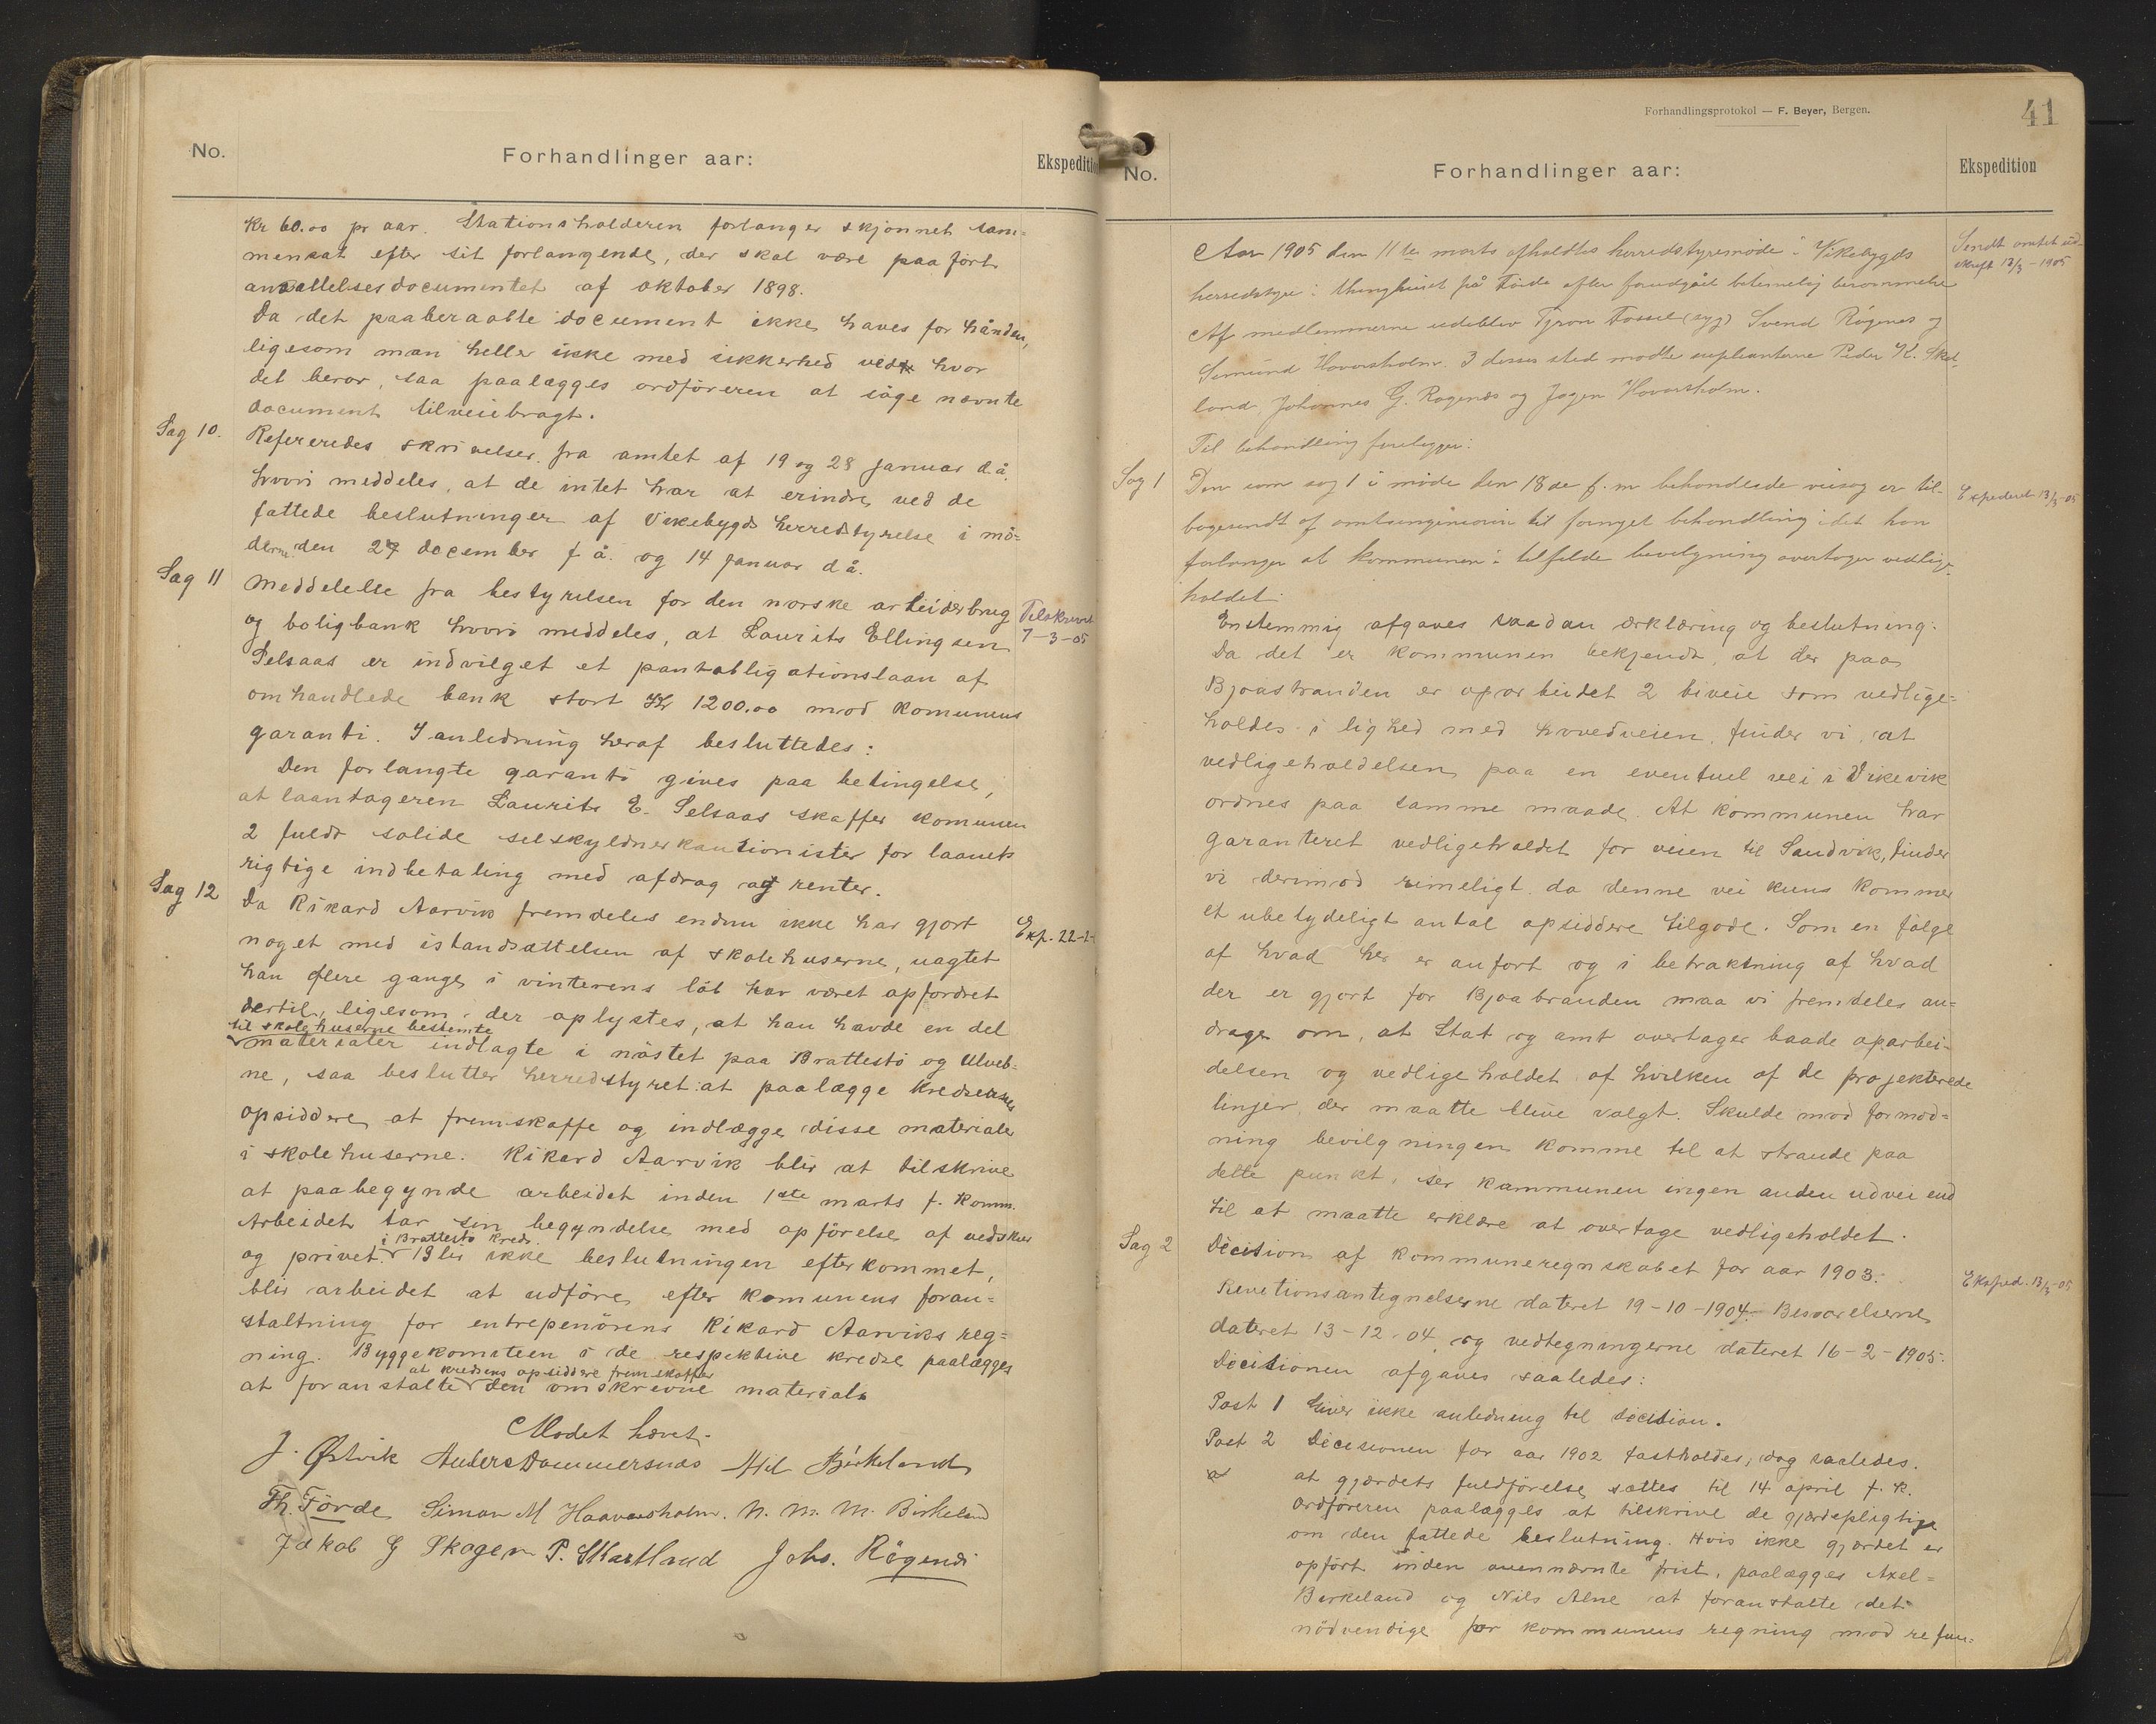 No.
Forhandlinger aar:
Ekspedition
Kr 60.00 pr aar. Stationsholderen forlanger skjønnet sam-
mensat efter sit forlangende, der skal være paaført
ansættelsesdocumentet af oktober 1898.
Da det paaberaabte document ikke haves for hånden,
ligesom man heller ikke med sikkerhed ved hvor
det beror, saa paalægges ordføreren at söge nævnte
document tilveiebragt.
Sag 10.
Refereredes skrivelser fra amtet af 19 og 28 januar d.å.
hvori meddeles, at de intet har at erindre ved de
fattede beslutninger af Vikebygds herredstyrelse i mö-
derne den 29 december f å. og 14 januar d å.
Sag 11
Meddelelse fra bestyrelsen for den norske arbeiderbrug
og boligbank hvori meddeles, at Laurits Ellingsen
Selsaas er indvilget et pantobligationslaan af
omhandlede bank stort Kr 1200.00 mod komunens
garanti. I anledning heraf besluttedes:
Tilskrevet
7-3-05
Den forlangte garanti gives paa betingelse,
at laantageren Laurits E. Selsaas skaffer komunen
2 fuldt solide selskyldnerkautionister for laanets
rigtige indbetaling med afdrag og renter.
Sag 12
Da Rikard Aarvik fremdeles endnu ikke har gjort
noget med istandsættelsen af skolehuserne, uagtet
han flere gange i vinterens löb har været opfordret
dertil, ligesom der oplystes, at han havde en del
til skolehuserne bestemte
materialer indlagte i nöstet paa Brattestö og Ulveb-
ne, saa beslutter herredstyret: at paalægge kredsenes
opsiddere at fremskaffe og indlægge disse materialer
i skolehuserne. Rikard Aarvik blir at tilskrive
at paabegynde arbeidet inden 1ste marts f. komm.
Arbeidet tar sin begyndelse med opförelse af vedskur
i Brattestö kreds.
og privet. Blir ikke beslutningen efterkommet,
blir arbeidet at udföre efter komunens foran-
staltning for entrepenörens Rikard Aarviks reg-
ning. Byggekomiteen i de respektive kredse paalægges
at kredsens opsiddere fremskaffer
at foranstalte den omskrevne materiale
Exp. 22-2-
Mødet hævet.
J. Østvik Anders Dommersnæs Axel Birkeland
Th. Förde Simon M Haaversholm. N. M. M. Birkeland
Jakob G Skogen P. Skartland Johs. Rögenes
Forhandlingsprotokol — F. Beyer, Bergen.
41
No.
Forhandlinger aar:
Ekspedition
Aar 1905 den 11te marts afholdtes herredstyremöde i Vikebygds
herredstyre i thinghuset på Förde efter forudgået betimelig berammelse
Af medlemmerne udeblev Tjron Fosse (syg) Svend Rögenes og
Simund Hovorsholm. I deres sted mödte suplianterne Peder K. Skot-
land, Johannes G. Rogenæs og Jogen Hovorsholm.
Sendt amtet ud-
skrift 13/3-1905
Til behandling forelegger:
Sag 1
Den som sag 1 i möde den 18de f.m behandlede veisag er til-
bagesendt af amtsingeniören til fornyet behandling idet han
forlanger at kommunen i tilfelde bevilgning overtager vedlige-
holdet.
Expederet 13/3-05
Enstemmig afgaves saadan erklæring og beslutning:
Da det er kommunen bekjendt, at der paa
Bjoastranden er oparbeidet 2 biveie som vedlige-
holdes i lighed med hovedveien, finder vi, at
vedligeholdelsen paa en eventuel vei i Vikevik
ordnes paa samme maade. At kommunen har
garanteret vedligeholdet for veien til Sandvik, finder
vi derimod rimeligt, da denne vei kuns kommer
et ubetydeligt antal opsiddere tilgode. Som en følge
af hvad her er anfort og i betraktning af hvad
der er gjort for Bjoabranden maa vi fremdeles an-
drage om, at Stat og amt overtager baade oparbei-
delsen og vedligeholdet af hvilken af de projekterede
linjer, der maatte blive valgt. Skulde mod formod-
ning bevilgningen komme til at strande paa
dette punkt, ser kommunen ingen anden udvei end
til at maatte erklære at overtage vedligeholdet.
Sag 2
Decision af kommuneregnskabet for aar 1903:
Revetionsantegnelserne dateret 19-10-1904. Besvarelserne
dateret 13-12-04, og vedtegningerne dateret 16-2-1905.
Decisionen afgaves saaledes:
Eksped. 13/3-05
Post 1 Giver ikke anledning til decision.
Post 2 Decisionen for aar 1902 fastholdes, dog saaledes.
at gjærdets fuldförelse sættes til 14 april f. k.
Ordføreren paalægges at tilskrive de gjærdepligtige
om den fattede beslutning. Hvis ikke gjærdet er
opfört inden ovennævnte frist, paalægges Axel-
Birkeland og Nils Alne at foranstalte det
nödvendige for kommunens regning mod refun-